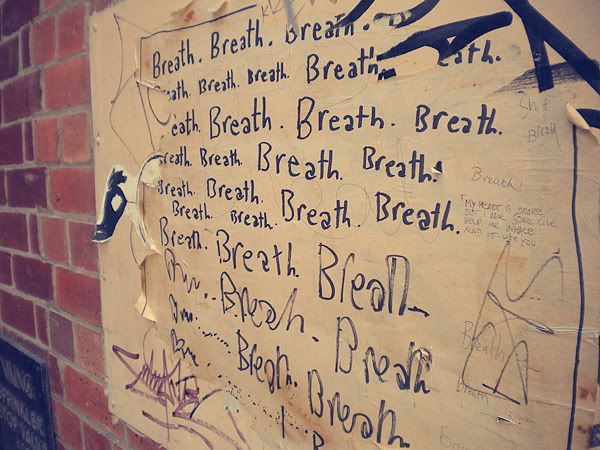 Breath. Breath. Breath.
eath. Breath. Breath. Breath. eath.
eath. Breath. Breath. Breath.
Breath. Breath. Breath. Breath.
Breath. Breath.
Breath. Breath. Breath. Breath.
Breath. Breath. Breath
Breath. Breath
Breath. Breath.
Shit
Breath
Breath!
MY HEART IS
HELP ME INHALE
AND IT WITH YOU
Breath
Breath
Breath